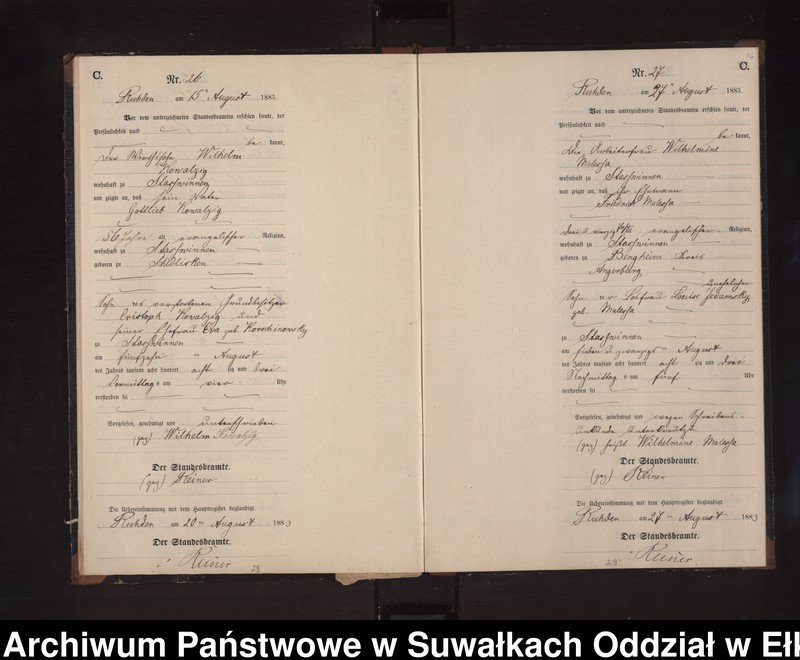 C.
Nr. 26
Ruhden am 15ten August 1883.
Vor dem unterzeichneten Standesbeamten erschien heute, der
Persönlichkeit nach
be kannt,
der Wirthssohn Wilhelm
Kowalzig
wohnhaft zu Stasswinnen
und zeigte an, daß sein Vater
Gottlieb Kowalzig
56 Jahre alt, evangelischer Religion,
wohnhaft zu Stasswinnen
geboren zu
Sohn des verstorbenen Grundbesitzer
Cristoph Kowalzig und
seiner Ehefrau Eva geb.
zu Stasswinnen
am fünfzehn ten August
des Jahres tausend acht hundert acht zig und drei
Vormittag s um vier Uhr
verstorben sei
Vorgelesen, genehmigt und unterschrieben
(gez) Wilhelm Kowalzig
Der Standesbeamte.
(gez) Reiner
Die Uebereinstimmung mit dem Hauptregister beglaubigt.
Ruhden am 20ten August 1883
Der Standesbeamte.
Reiner
28
C.
Nr. 27
Ruhden am 27ten August 1883.
Vor dem unterzeichneten Standesbeamten erschien heute, der
Persönlichkeit nach
be kannt,
die Arbeiterfrau Wilhelmine
Malessa
wohnhaft zu Stasswinnen
und zeigte an, daß ihr Ehemann
Friedrich Malessa
evangelischer Religion,
wohnhaft zu Stasswinnen
geboren zu Bengheim Kreis
Angerburg
unehelicher
Sohn der Losfrau Louise
geb. Malessa
zu Stasswinnen
am sieben u zwanzigs ten August
des Jahres tausend acht hundert acht zig und drei
Nachmittag s um fünf Uhr
verstorben sei
Vorgelesen, genehmigt und wegen Schreibens-
unkunde unterkreutzt
(gez) Wilhelmine Malessa
Der Standesbeamte.
(gez) Reiner
Die Uebereinstimmung mit dem Hauptregister beglaubigt.
Ruhden am 27ten August 1883
Der Standesbeamte.
Reiner
29
Archiwum Państwowe w Suwałkach Oddział w Eł